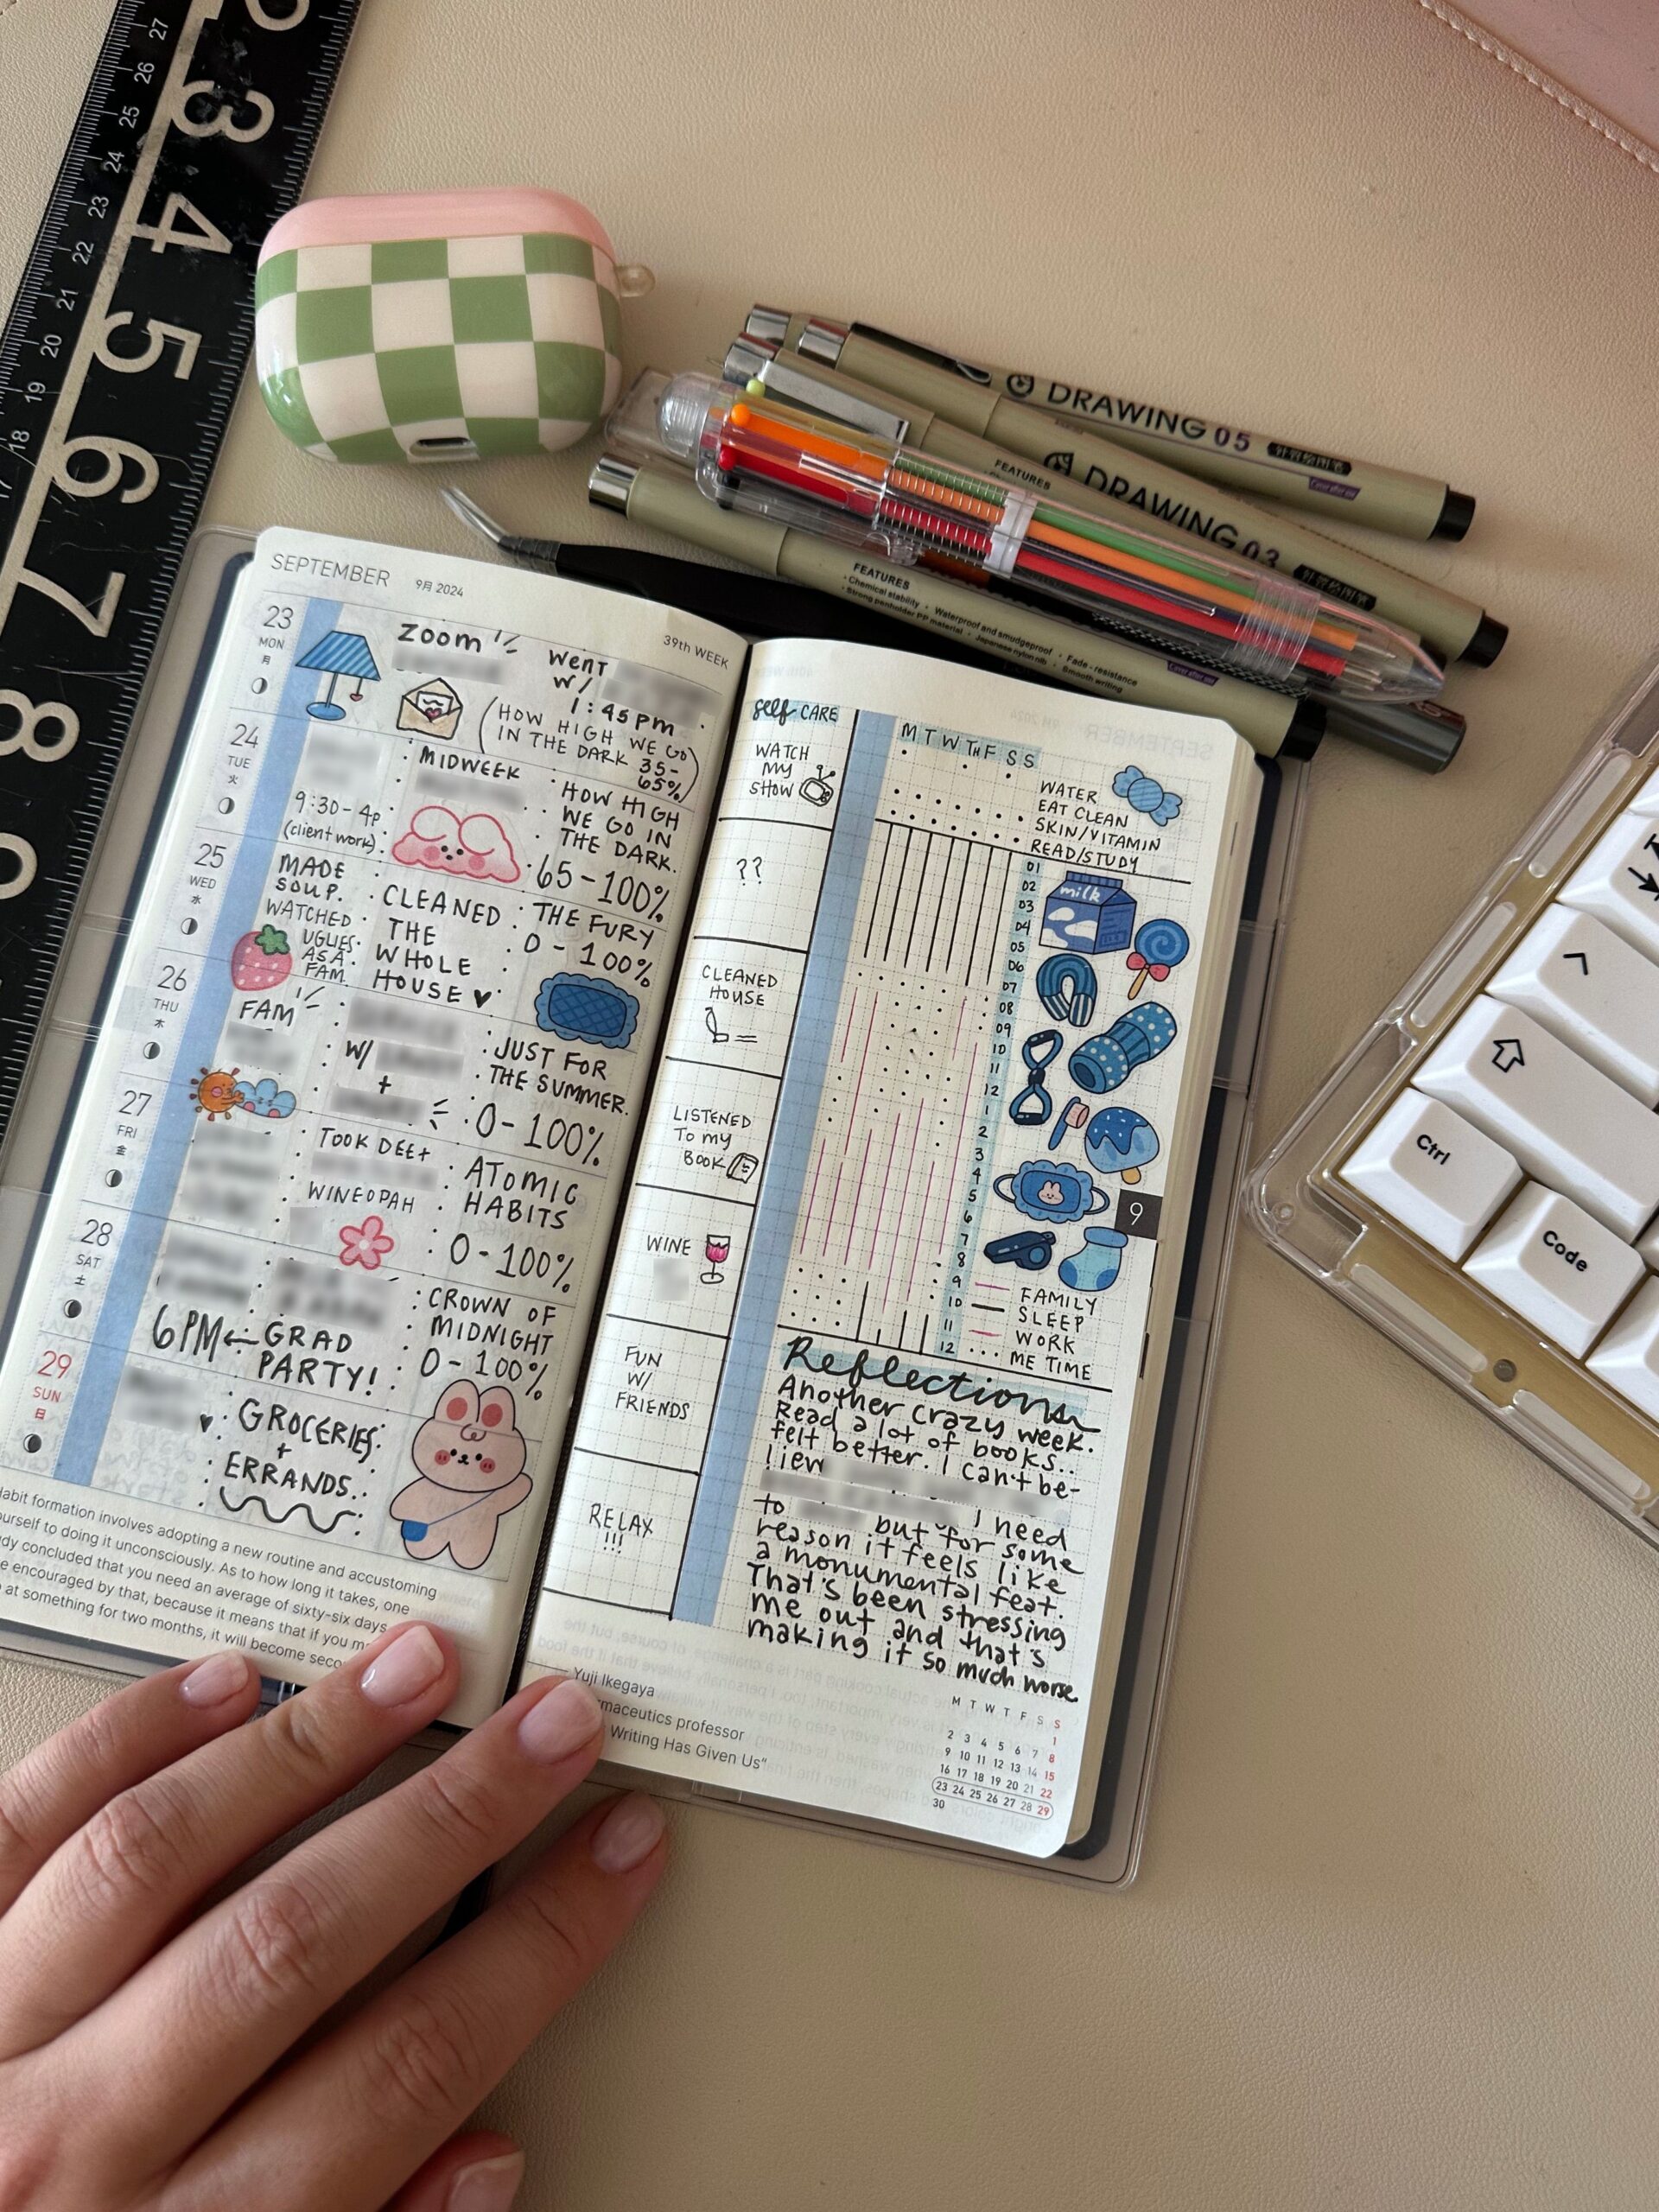 SEPTEMBER 9月 2024
39th WEEK
23
MON
月
zoom
WENT
W/
1:45pm
(HOW HIGH WE GO
IN THE DARK 35-
65%)
24
TUE
火
9:30-4p
(client work)
MIDWEEK
HOW HIGH
WE GO IN
THE DARK.
65-100%
25
WED
水
MADE
SOUP.
WATCHED
UGLIES
AS A
FAM.
CLEANED
THE
WHOLE
HOUSE ♥
THE FURY
0-100%
26
THU
木
FAM
W/
+
JUST FOR
THE SUMMER.
0-100%
27
FRI
金
TOOK DEE+
WINEOPAH
ATOMIC
HABITS
0-100%
28
SAT
土
6PM← GRAD
PARTY!
CROWN OF
MIDNIGHT
0-100%
29
SUN
日
♥
GROCERIES
+
ERRANDS.
Habit formation involves adopting a new routine and accustoming
ourself to doing it unconsciously. As to how long it takes, one
concluded that you need an average of sixty-six days
encouraged by that, because it means that if you
at something for two months, it will become
self CARE
WATCH
MY
SHOW
??
CLEANED
HOUSE
LISTENED
To my
BOOK
WINE
FUN
W/
FRIENDS
RELAX
!!!
M T W TH F S S
WATER
EAT CLEAN
SKIN/VITAMIN
READ/STUDY
01
02
03
04
05
06
07
08
09
10
11
12
1
2
3
4
5
6
7
8
9
10
11
12
milk
9
FAMILY
SLEEP
WORK
ME TIME
Reflection
Another crazy week.
Read a lot of books..
felt better. I can't be-
liev
to but I need
reason it feels like
a monumental feat.
That's been stressing
me out and that's
making it so much worse.
— Yuji Ikegaya
professor
Writing Has Given Us"
M T W T F S S
1
2 3 4 5 6 7 8
9 10 11 12 13 14 15
16 17 18 19 20 21 22
23 24 25 26 27 28 29
30
DRAWING 05
Cover after use
FEATURES
DRAWING 03
FEATURES
• Chemical stability • Waterproof and smudgeproof • Fade-resistance
• Strong penholder PP material • Japanese nylon nib • Smooth writing
Cover after use
3
4
5
6
7
8
27
26
25
24
23
22
21
20
19
18
17
Ctrl
Code